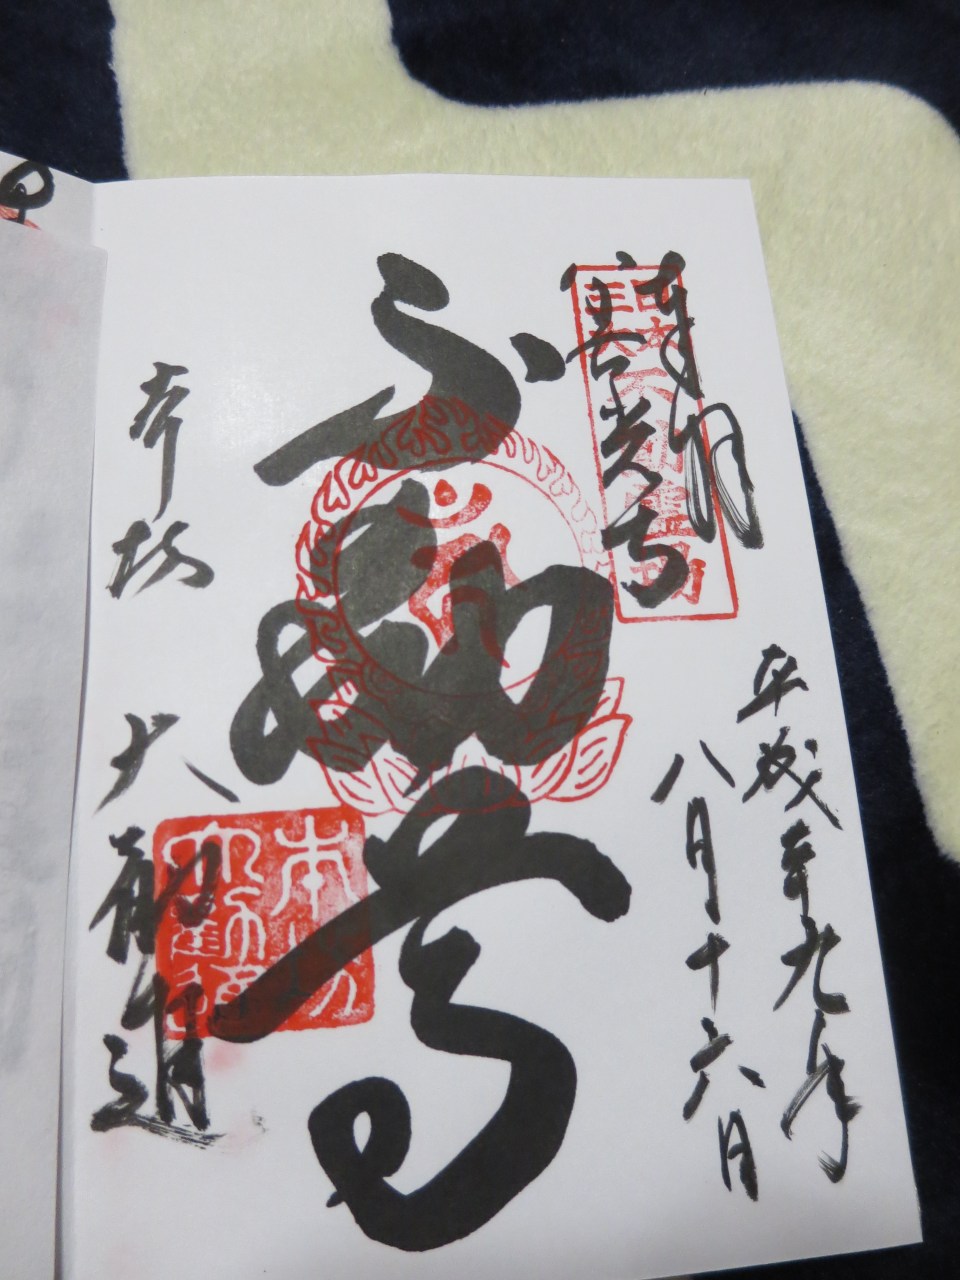 奉拝
善光寺
日本
三大
平成二十九年
八月十六日
不動尊
本坊 大勧進
本坊
大勧進